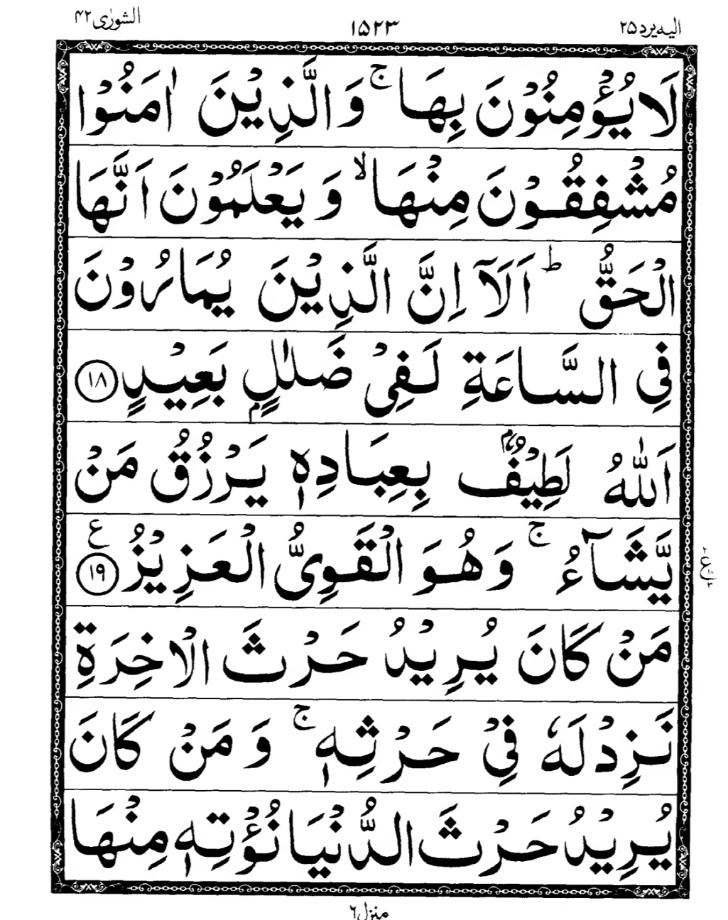 الشورٰی ۴۲ ۱۵۲۳ الیه یرد ۲۵
لَا يُؤْمِنُوْنَ بِهَا ۚ وَالَّذِيْنَ اٰمَنُوْا
مُشْفِقُوْنَ مِنْهَا ۙ وَ يَعْلَمُوْنَ اَنَّهَا
الْحَقُّ ؕ اَلَاۤ اِنَّ الَّذِيْنَ يُمَارُوْنَ
فِي السَّاعَةِ لَفِيْ ضَلٰلٍۭ بَعِيْدٍ ۱۸
اَللّٰهُ لَطِيْفٌۢ بِعِبَادِهٖ يَرْزُقُ مَنْ
يَّشَآءُ ۚ وَهُوَ الْقَوِيُّ الْعَزِيْزُ ۱۹ ع
مَنْ كَانَ يُرِيْدُ حَرْثَ الْاٰخِرَةِ
نَزِدْ لَهٗ فِيْ حَرْثِهٖ ۚ وَ مَنْ كَانَ
يُرِيْدُ حَرْثَ الدُّنْيَا نُؤْتِهٖ مِنْهَا
منزل ۶